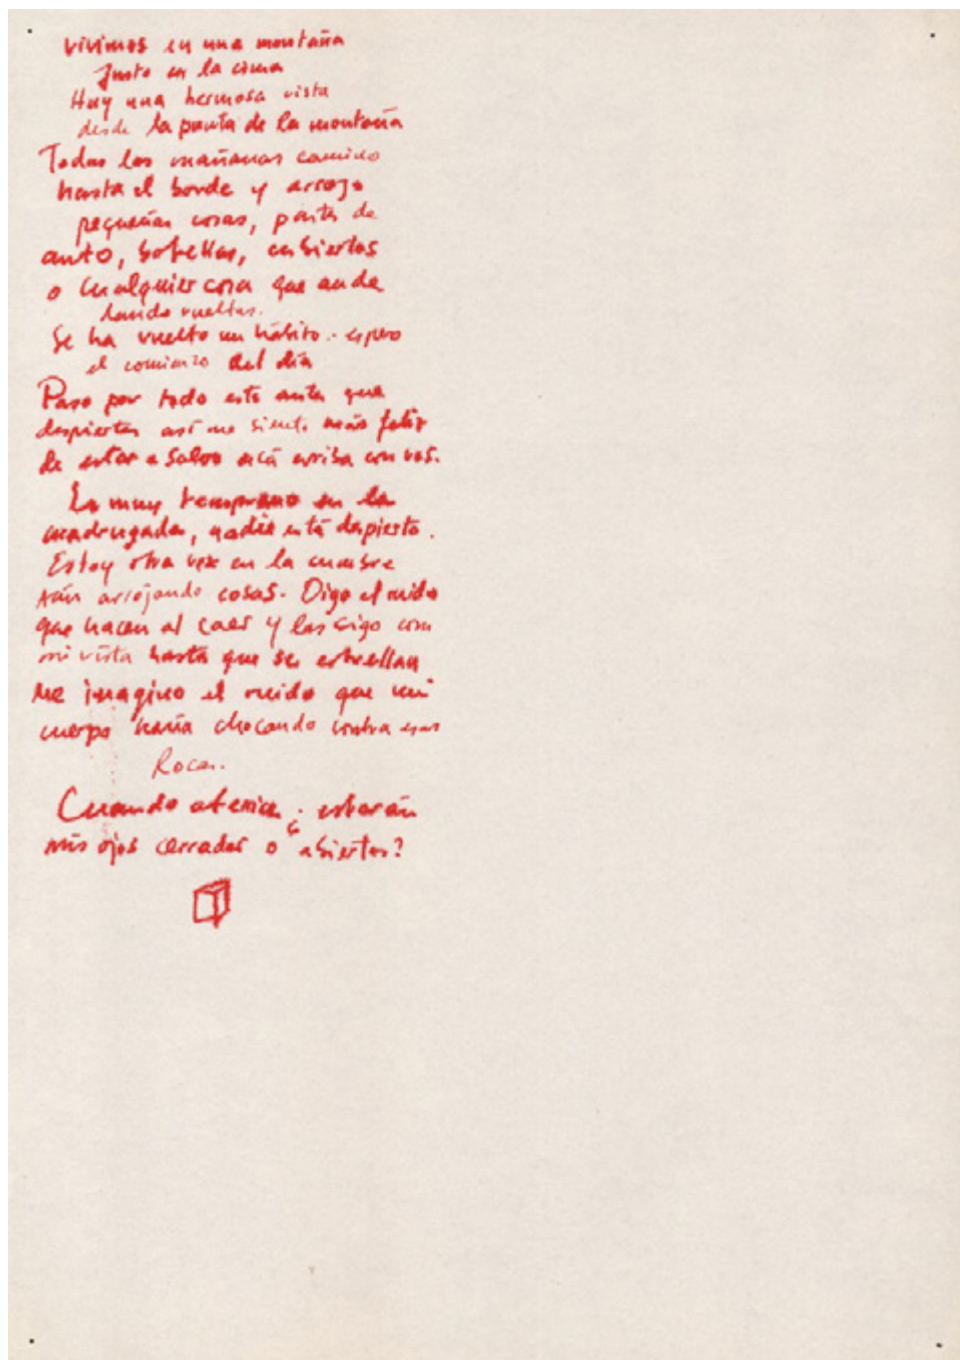 vivimos en una montaña
Justo en la cima
Hay una hermosa vista
desde la punta de la montaña
Todas las mañanas camino
hasta el borde y arrojo
pequeñas cosas, partes de
auto, botellas, cubiertos
o cualquier cosa que ande
dando vueltas.
Se ha vuelto un hábito.. espero
el comienzo del día
Paso por todo esto antes que
despiertes así me siento más feliz
de estar a salvo acá arriba con vos.
Es muy temprano en la
madrugada, nadie está despierto.
Estoy otra vez en la cumbre
aún arrojando cosas. Oigo el ruido
que hacen al caer y las sigo con
mi vista hasta que se estrellan
Me imagino el ruido que mi
cuerpo haría chocando contra esas
Rocas.
Cuando aterrice ¿ estarán
mis ojos cerrados o abiertos?